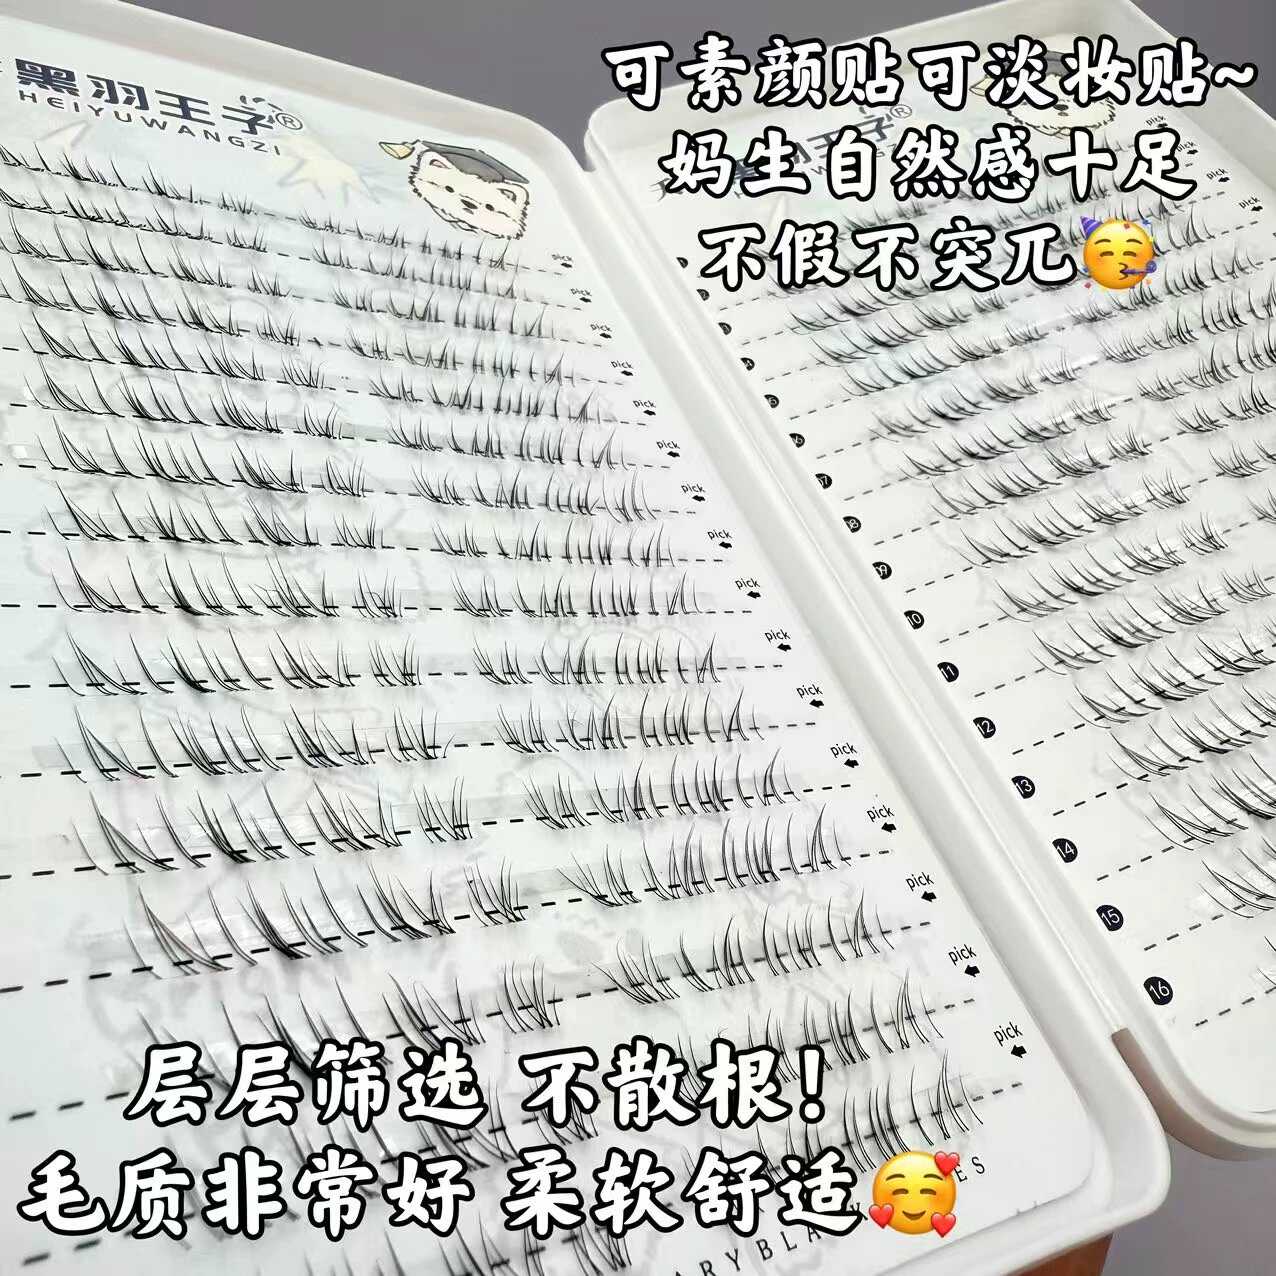 黑羽王子®
HEIYUWANGZI
可素颜贴可淡妆贴~
妈生自然感十足
不假不突兀🥳
pick
pick
pick
pick
pick
pick
pick
pick
pick
pick
pick
pick
pick
pick
pick
pick
pick
pick
pick
pick
08
09
10
11
12
13
14
15
16
层层筛选 不散根！
毛质非常好 柔软舒适🥰